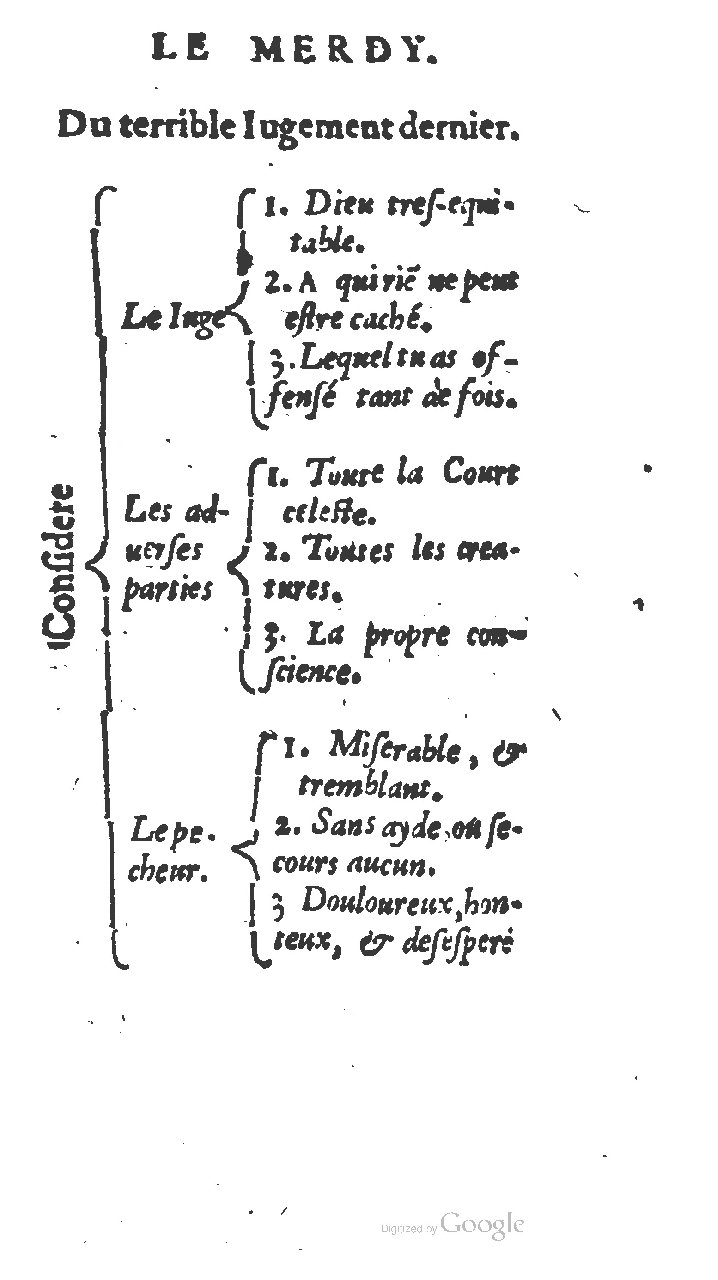 LE MERDY.
Du terrible Iugement dernier.
Conſidere
Le Iuge
1. Dieu treſ-equi-
table.
2. A qui riẽ ne peut
eſtre caché.
3. Lequel tu as of-
fenſé tant de fois.
Les ad-
uerſes
parties
1. Toute la Court
celeſte.
2. Toutes les crea-
tures.
3. La propre con-
ſcience.
Le pe-
cheur.
1. Miſerable, &
tremblant.
2. Sans ayde, ou ſe-
cours aucun.
3 Douloureux, hon-
teux, & deſeſperé
Digitized by Google